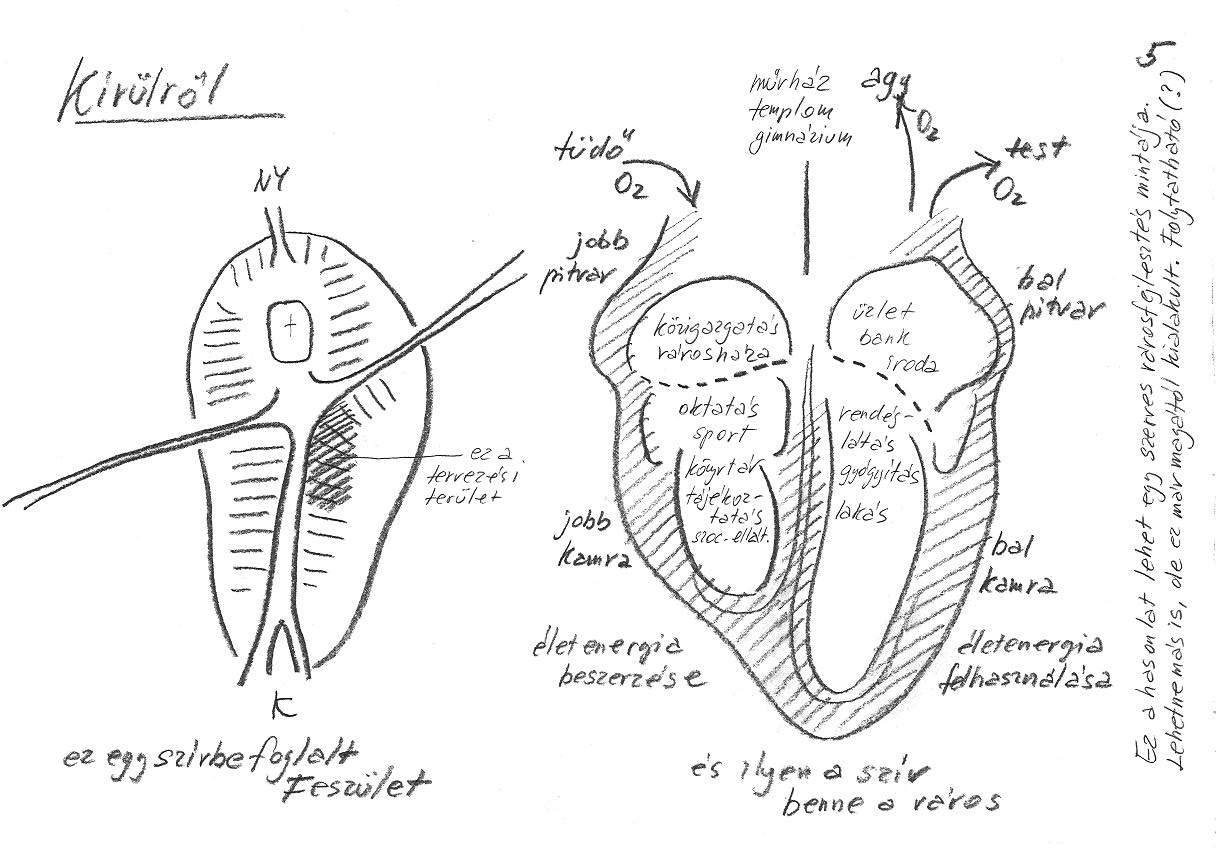 Kivülről
5
NY
ez a
tervezési
terület
K
ez egy szívbe foglalt
Feszület
tüdő
O₂
jobb
pitvar
műrház
templom
gimnázium
agy
O₂
test
O₂
bal
pitvar
közigazgatás
városháza
oktatás
sport
könyvtár
tájékoz-
tatás
szoc-ellát.
üzlet
bank
iroda
rendés-
látás
gyógyítás
lakás
jobb
kamra
bal
kamra
életenergia
beszerzése
életenergia
felhasználása
és ilyen a szív
benne a város
Ez a hasonlat lehet egy szerves városfejlesztés mintája.
Lehetne más is, de ez már magától kialakult. Folytatható (?)